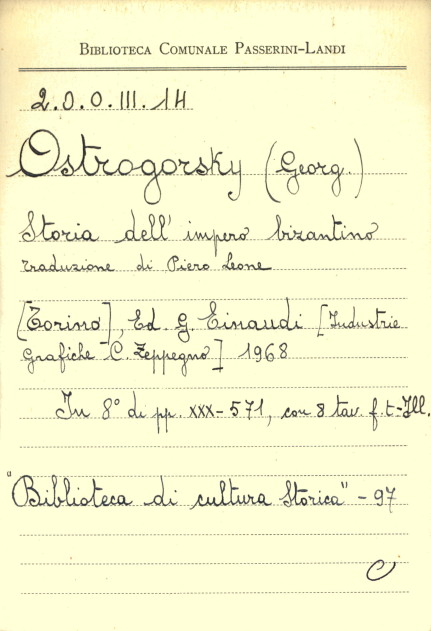 BIBLIOTECA COMUNALE PASSERINI-LANDI
2.O.O.III.14
Ostrogorsky (Georg.)
Storia dell' impero bizantino
traduzione di Piero Leone
[Torino], Ed. G. Einaudi [Industrie
Grafiche C. Zeppegno] 1968
In 8° di pp. XXX-571, con 8 tav. f.t-Ill.
"Biblioteca di cultura Storica" - 97